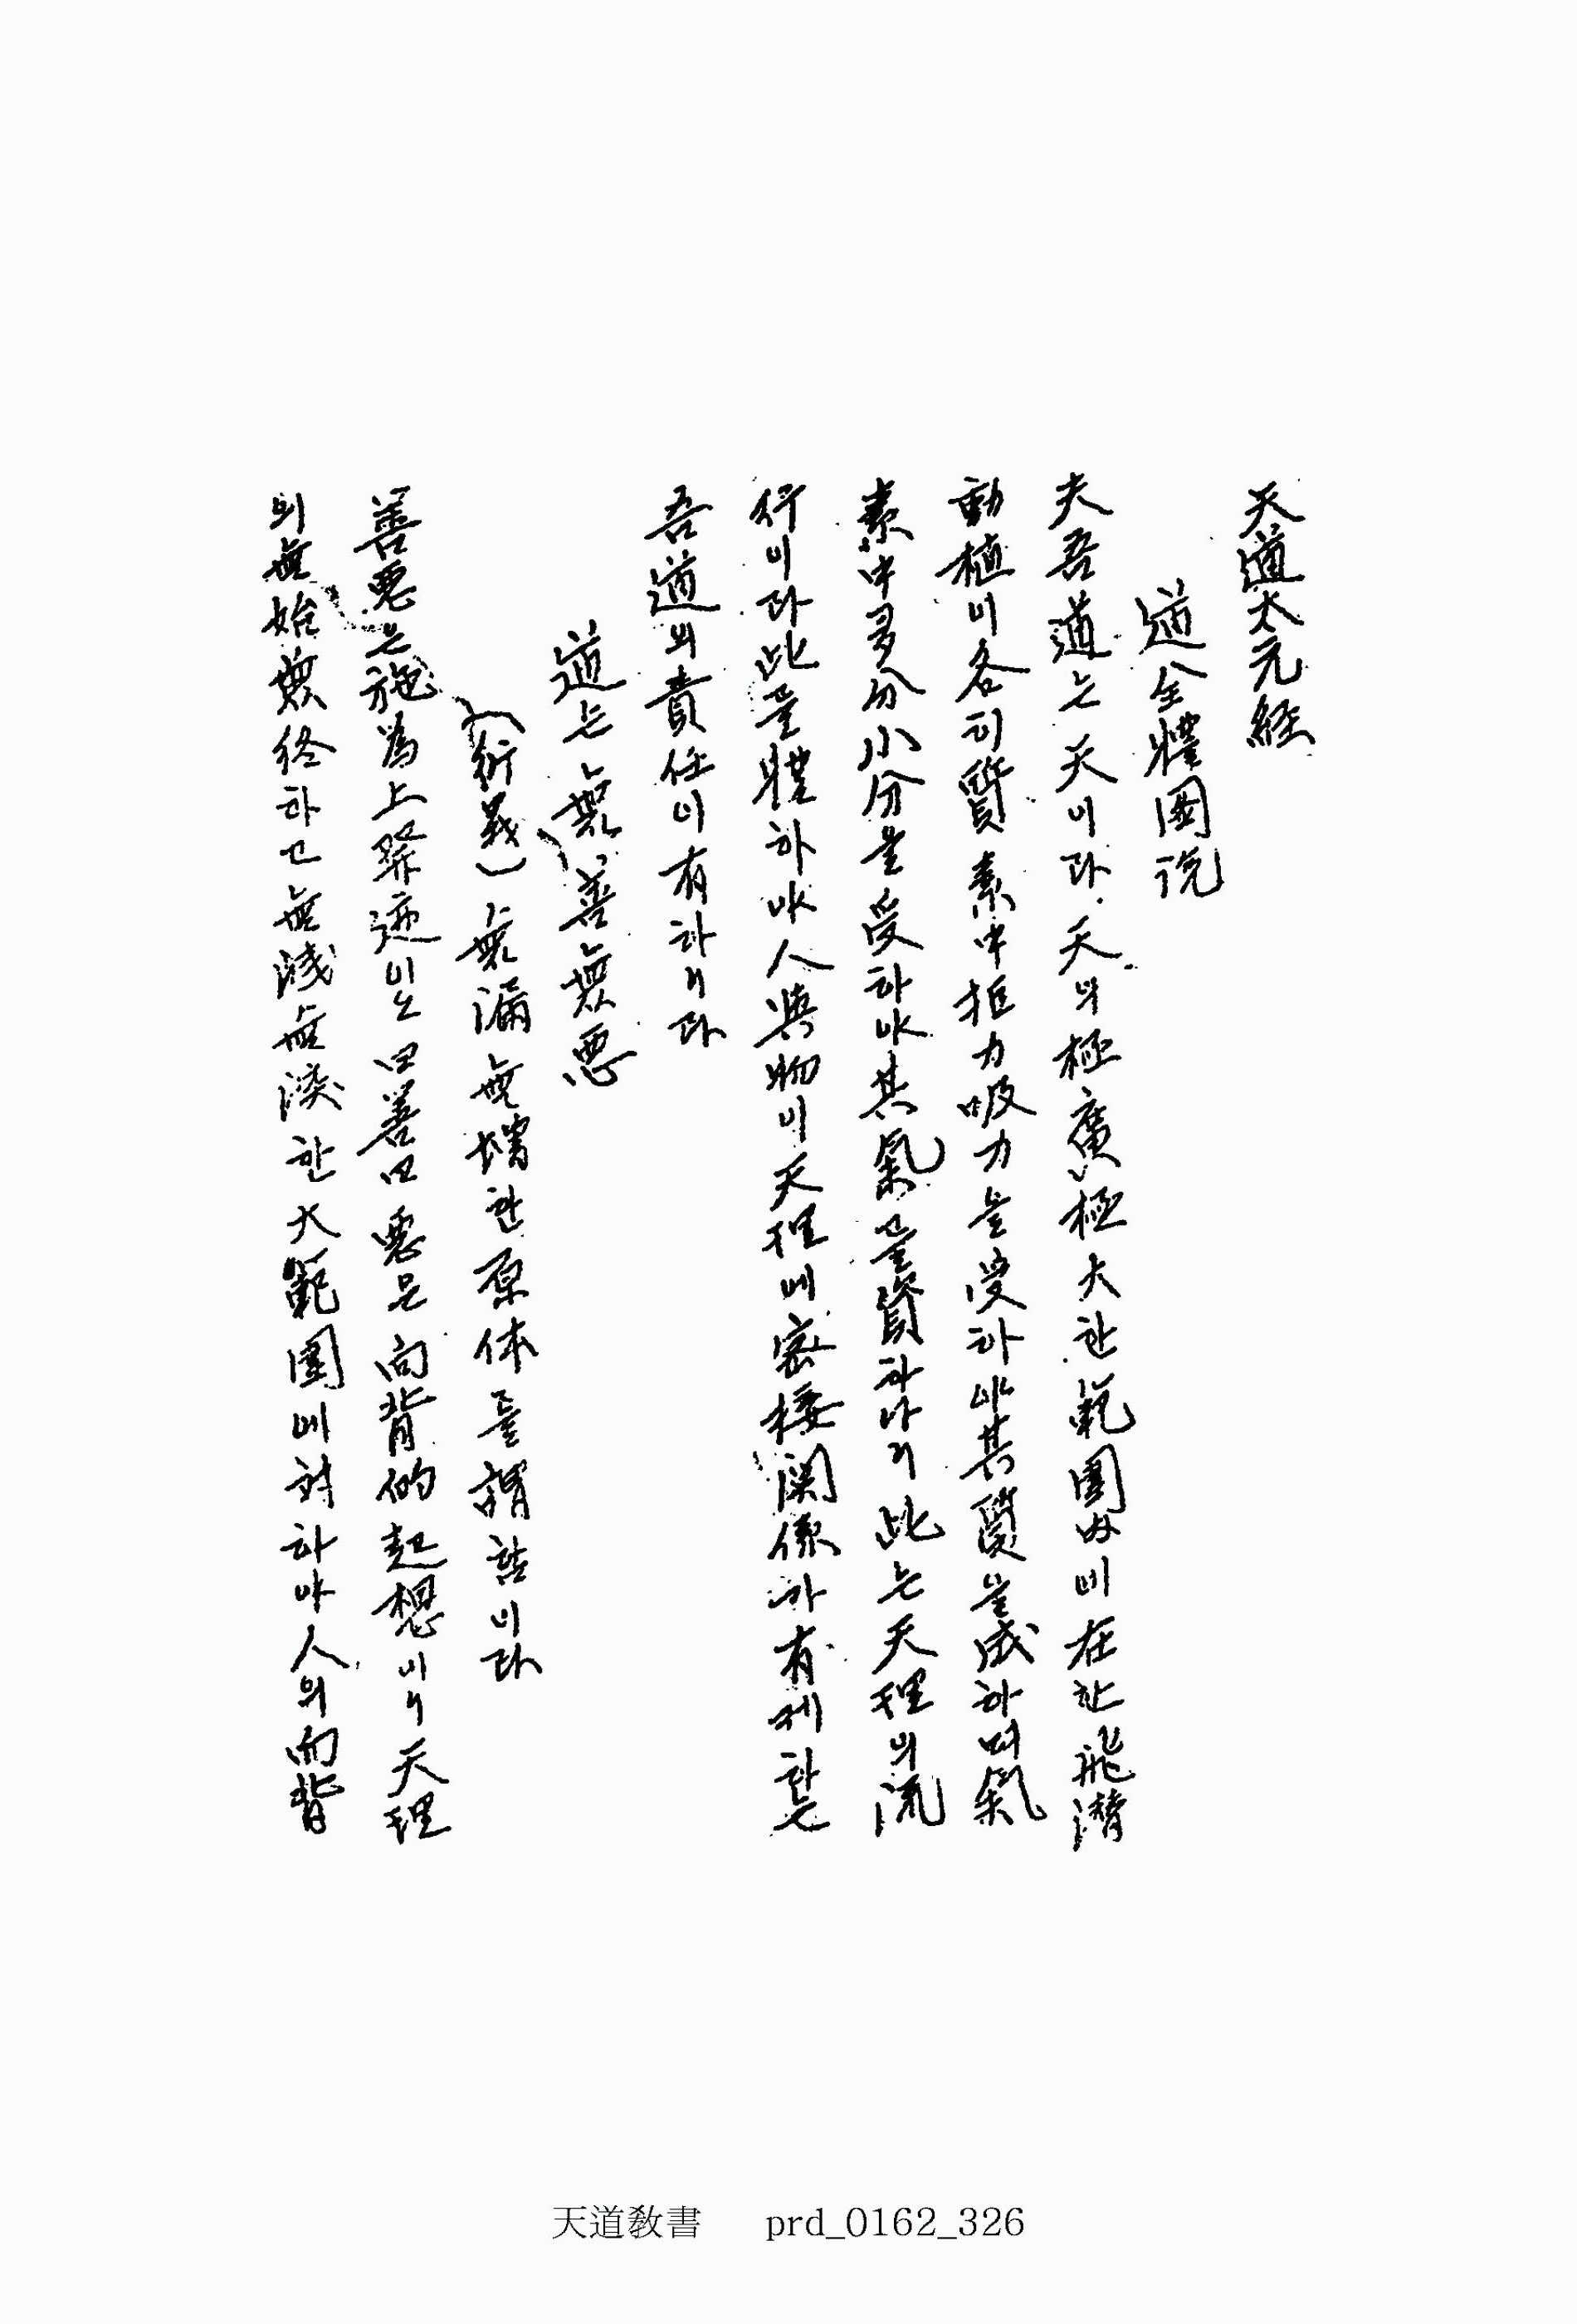 天道太元經
道全體圖說
夫吾道는天이라天의極廣極大한範圍內에在한飛潛
動植이各司質素中拒力吸力을受하야其質을成하며氣
素中多分小分을受하야其氣를資하나니此는天理의流
行이라此를體하야人與物이天理에密接關係가有케하는
吾道의責任이有하니라
道는無善無惡
(衍義)無漏無增한原体를謂함이라
善惡은施爲上發迹이오曰善曰惡은向背的起想이니天理
의無始無終하고無淺無深한大範圍에對하야人의向背
天道敎書 prd_0162_326